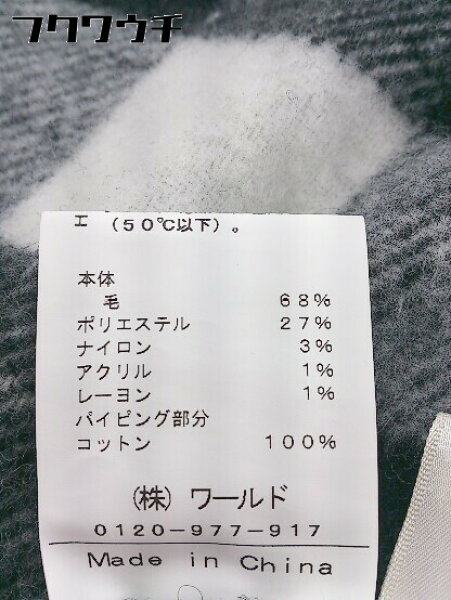 フクワウチ
エ (50℃以下)。
本体
毛 68%
ポリエステル 27%
ナイロン 3%
アクリル 1%
レーヨン 1%
パイピング部分
コットン 100%
(株) ワールド
0120-977-917
Made in China